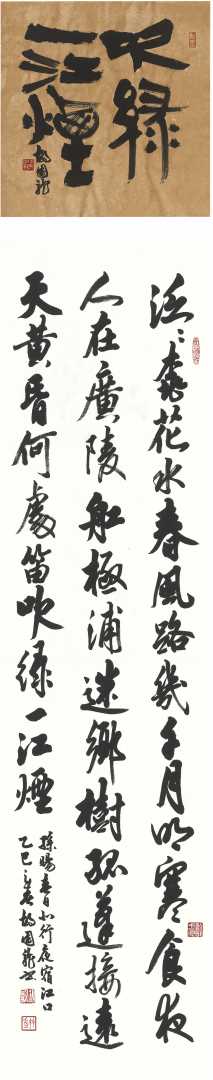 吹綠
一江煙
泛泛桃花水春風路幾千月明寒食夜
人在廣陵船極浦迷鄉樹孤蓬接遠
天黃昏何處笛吹綠一江煙
孫暘春日北行夜宿江口
乙巳